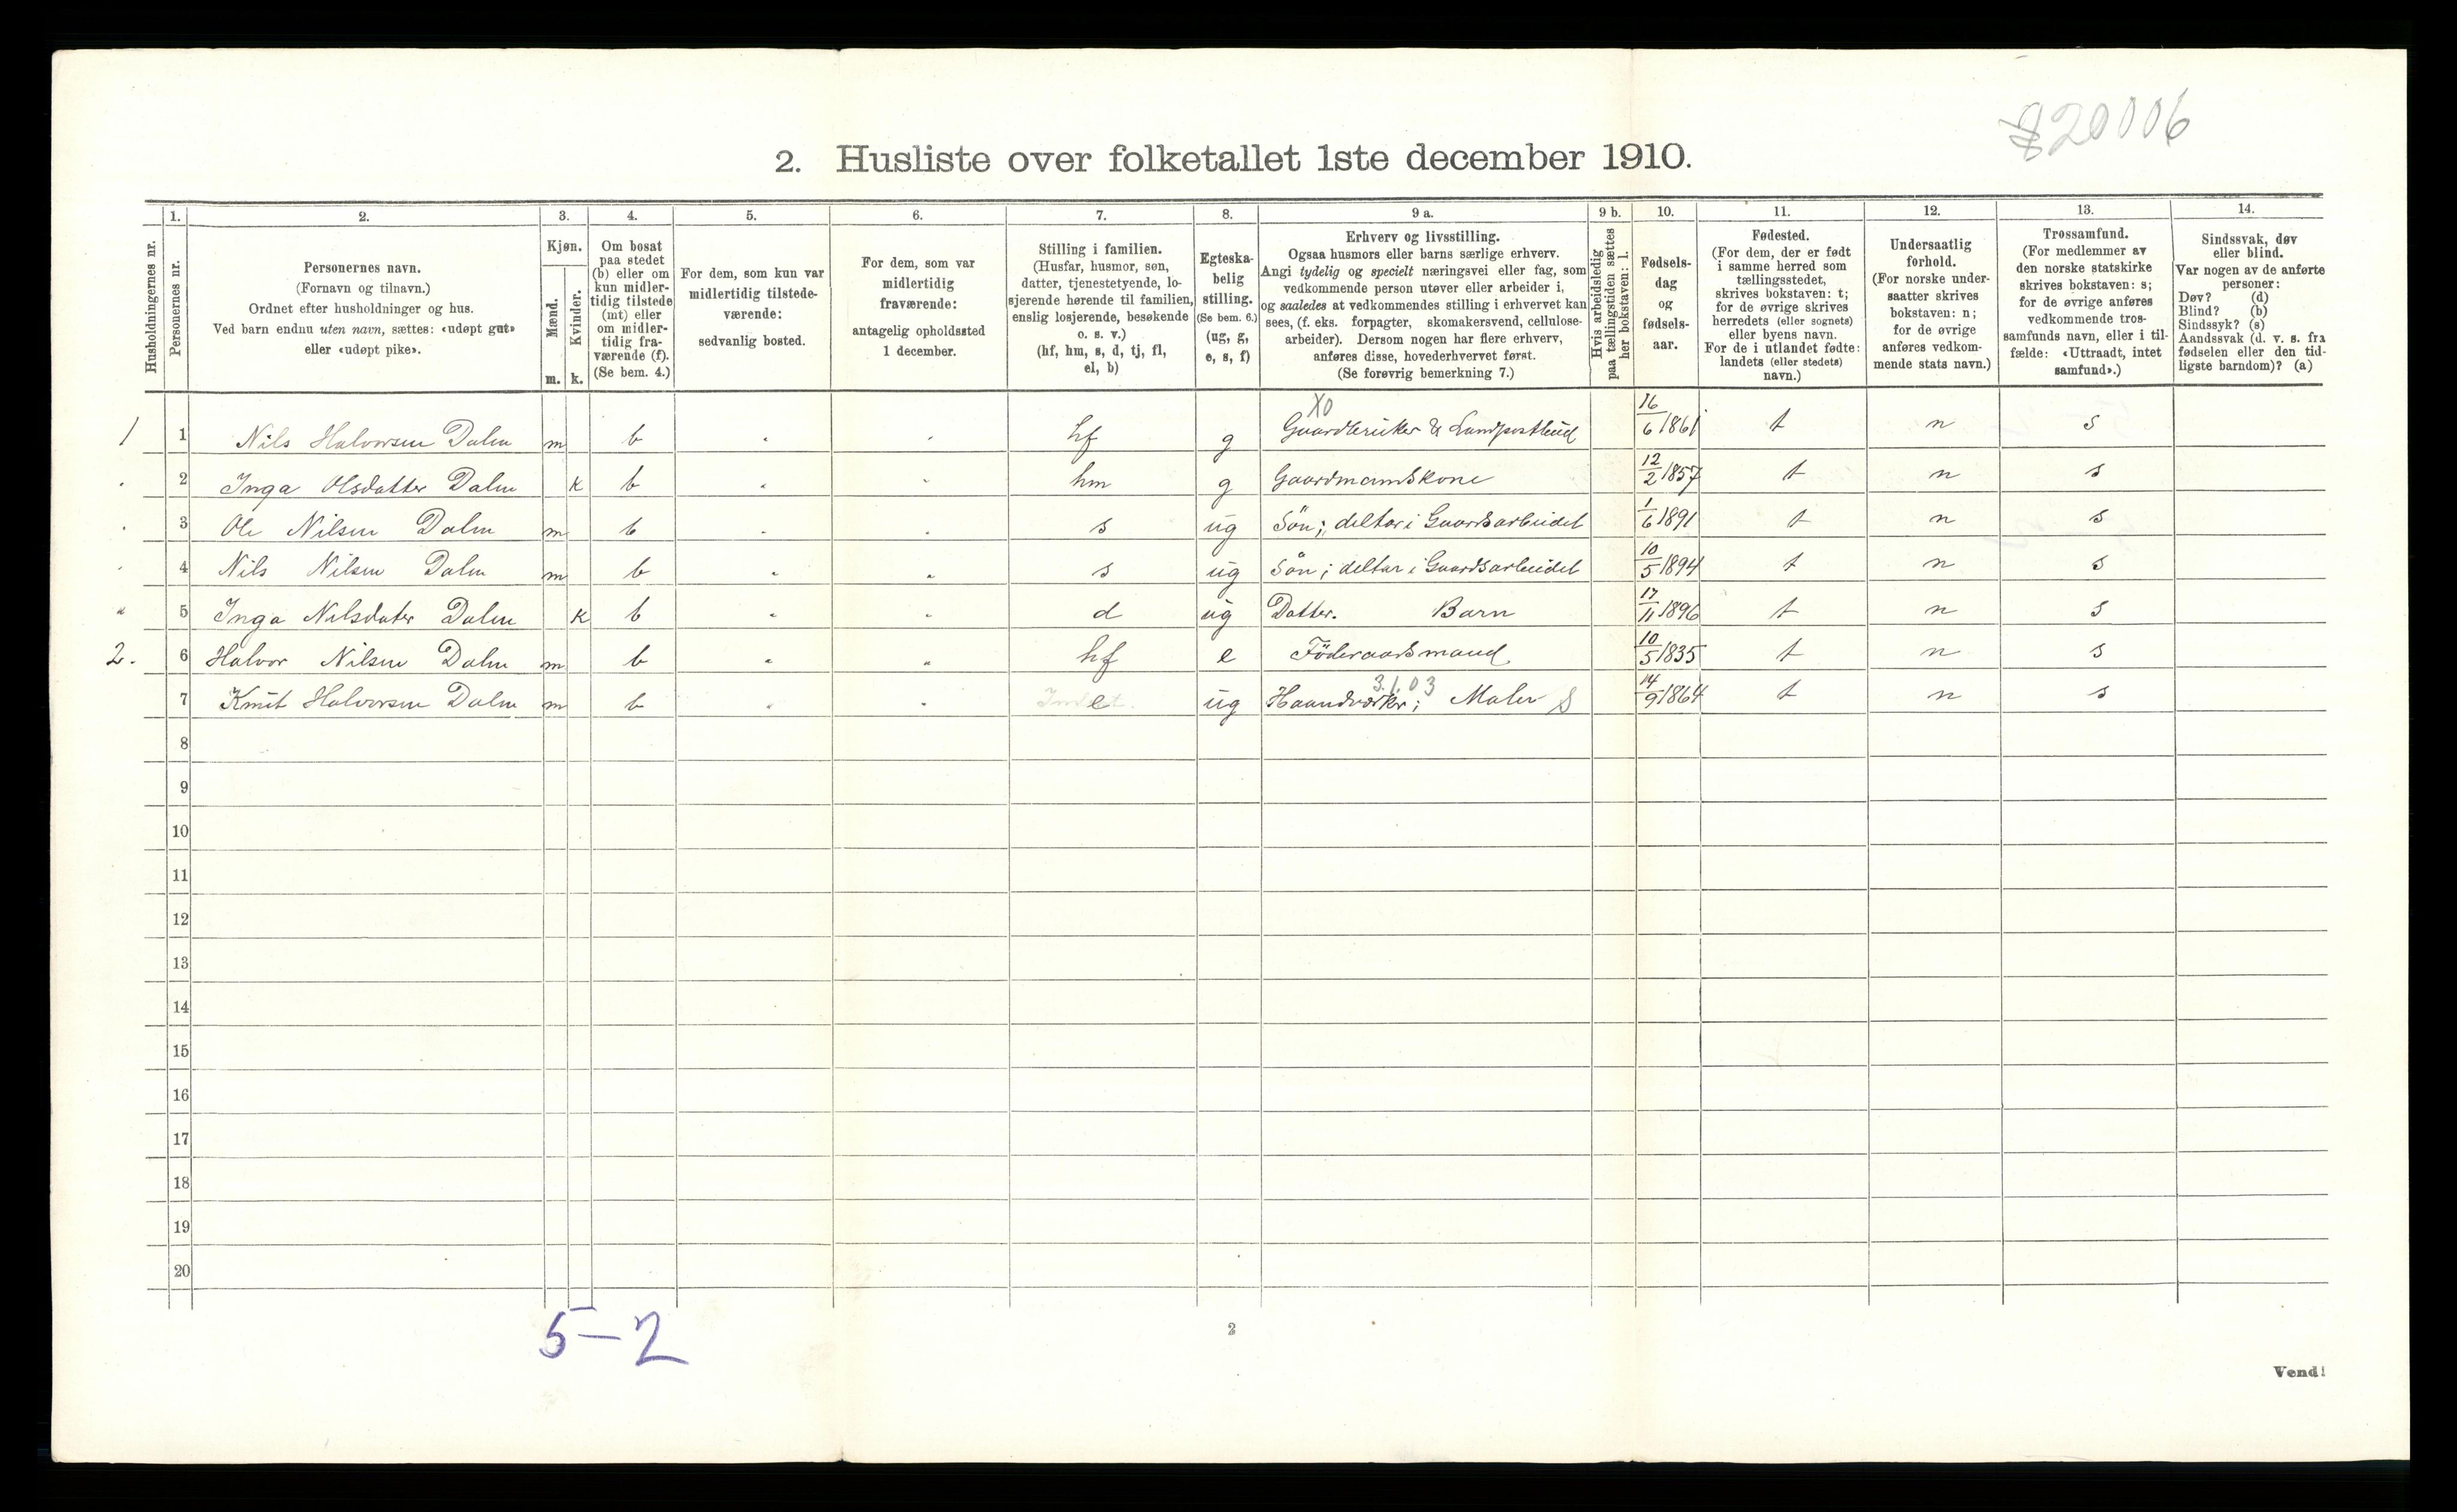 820006
2. Husliste over folketallet 1ste december 1910.
1. 2. 3. 4. 5. 6. 7. 8. 9 a. 9 b. 10. 11. 12. 13. 14.
Husholdningernes nr.
Personernes nr.
Personernes navn.
(Fornavn og tilnavn.)
Ordnet efter husholdninger og hus.
Ved barn endnu uten navn, sættes: «udøpt gut»
eller «udøpt pike».
Kjøn.
Mænd.
Kvinder.
m. k.
Om bosat
paa stedet
(b) eller om
kun midler-
tidig tilstede
(mt) eller
om midler-
tidig fra-
værende (f).
(Se bem. 4.)
For dem, som kun var
midlertidig tilstede-
værende:
sedvanlig bosted.
For dem, som var
midlertidig
fraværende:
antagelig opholdssted
1 december.
Stilling i familien.
(Husfar, husmor, søn,
datter, tjenestetyende, lo-
sjerende hørende til familien,
enslig losjerende, besøkende
o. s. v.)
(hf, hm, s, d, tj, fl,
el, b)
Egteska-
belig
stilling.
(Se bem. 6.)
(ug, g,
e, s, f)
Erhverv og livsstilling.
Ogsaa husmors eller barns særlige erhverv.
Angi tydelig og specielt næringsvei eller fag, som
vedkommende person utøver eller arbeider i,
og saaledes at vedkommendes stilling i erhvervet kan
sees, (f. eks. forpagter, skomakersvend, cellulose-
arbeider). Dersom nogen har flere erhverv,
anføres disse, hovederhvervet først.
(Se forøvrig bemerkning 7.)
Hvis arbeidsledig
paa tællingstiden sættes
her bokstaven: l.
Fødsels-
dag
og
fødsels-
aar.
Fødested.
(For dem, der er født
i samme herred som
tællingsstedet,
skrives bokstaven: t;
for de øvrige skrives
herredets (eller sognets)
eller byens navn.
For de i utlandet fødte:
landets (eller stedets)
navn.)
Undersaatlig
forhold.
(For norske under-
saatter skrives
bokstaven: n;
for de øvrige
anføres vedkom-
mende stats navn.)
Trossamfund.
(For medlemmer av
den norske statskirke
skrives bokstaven: s;
for de øvrige anføres
vedkommende tros-
samfunds navn, eller i til-
fælde: «Uttraadt, intet
samfund».)
Sindssvak, døv
eller blind.
Var nogen av de anførte
personer:
Døv? (d)
Blind? (b)
Sindssyk? (s)
Aandssvak (d. v. s. fra
fødselen eller den tid-
ligste barndom)? (a)
X0
1 1 Nils Halvorsen Dalen m b " " hf g Gaardbruker & Landpostbud 16/6 1861 t n s
" 2 Inga Olsdatter Dalen k b " " hm g Gaardmandskone 12/2 1857 t n s
" 3 Ole Nilsen Dalen m b " " s ug Sön; deltar i Gaardsarbeidet 1/6 1891 t n s
" 4 Nils Nilsen Dalen m b " " s ug Sön; deltar i Gaardsarbeidet 10/5 1894 t n s
" 5 Inga Nilsdater Dalen k b " " d ug Datter. Barn 17/11 1896 t n s
2. 6 Halvor Nilsen Dalen m b " " hf e Föderaadsmand 10/5 1835 t n s
3.1.03
7 Knut Halvorsen Dalen m b " " e ug Haandværker; Maler S 14/9 1864 t n s
8
9
10
11
12
13
14
15
16
17
18
19
20
5-2
2
Vend!